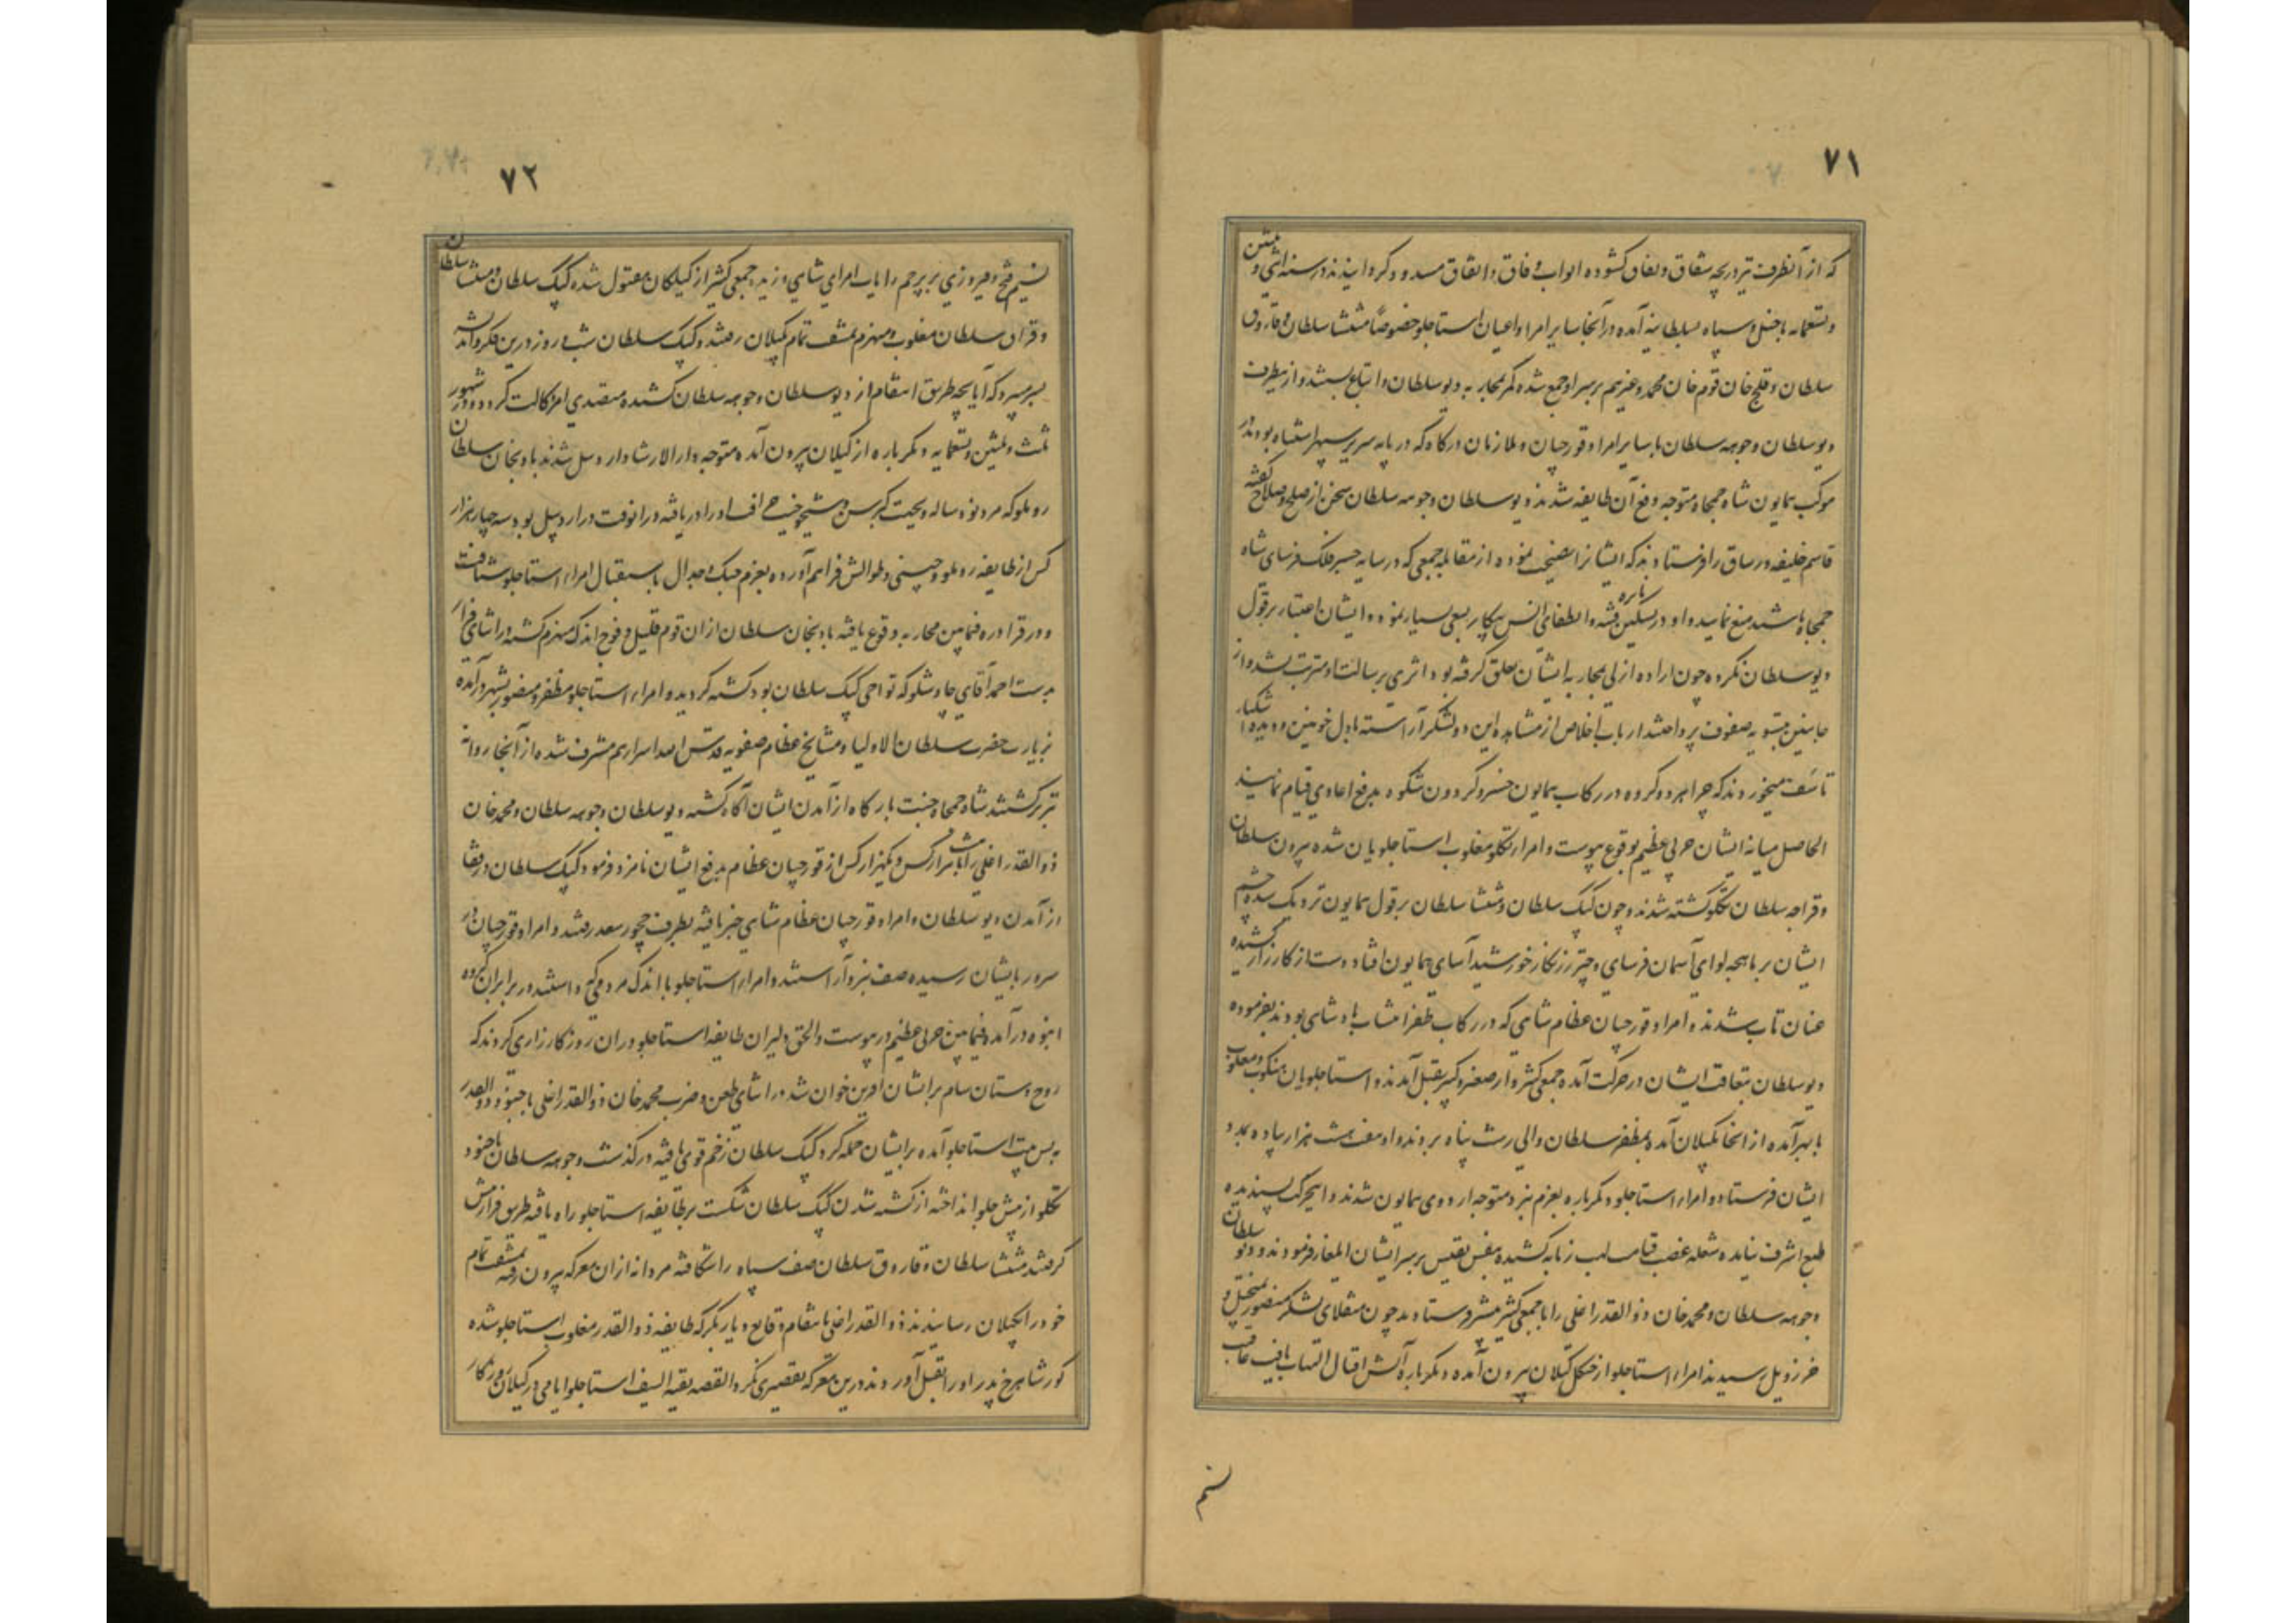 ۷۱
که از آنطرف نیز دریچه شقاق و نفاق کشوده ابواب وفاق و اتفاق مسدود کردانیدند در سنه اثنی و ثلثین
و تسعمایه با خیل و سپاه بسلطانیه آمده در آنجا سایر امرا و اعیان استاجلو خصوصاً منتشا سلطان و قاروق
سلطان و قلیج خان قوم خان محمد و غیرهم بر سر او جمع شده کمر بمحاربه دیو سلطان و اتباع بستند و از ینطرف
دیو سلطان و جوهه سلطان با سایر امرا و قورچیان و ملازمان درکاه که در پایه سریر سپهر اشتباه بودند در
موکب همایون شاه جمجاه متوجه دفع آن طایفه شدند دیو سلطان و جوهه سلطان سخن از صلح و صلاح کفته
قاسم خلیفه ورساق را فرستادند که ایشانرا نصیحت نموده از مقابله جمعی که در سایه چتر فلک فرسای شاه
جمجاه باشند منع نماید و او در تسکین فتنه و اطفای نایره پیکار سعی بسیار نموده ایشان اعتبار بر قول
دیو سلطان نکرده چون اراده ازلی بمحاربه ایشان تعلق کرفته بود اثری بر رسالت او مترتب نشد و از
جانبین بتسویه صفوف پرداختند ارباب اخلاص از مشاهده این دو لشکر آراسته با دل خونین و دیده اشکبار
تاسف میخوردند که چرا هر دو کروه در رکاب همایون خسرو کردون شکوه بدفع اعادی قیام ننمایند
الحاصل میانه ایشان حربی عظیم بوقوع پیوست و امراء تکلو مغلوب استاجلویان شده برون سلطان
و قراجه سلطان تکلو کشته شدند و چون کپک سلطان و منتشا سلطان بر قول همایون نزدیک شده چشم
ایشان بر ماهچه لوای آسمان فرسای و چتر زرنکار خورشید آسای همایون افتاد دست از کارزار کشیده
عنان تاب شدند و امرا و قورچیان عظام شاهی که در رکاب ظفر انتساب پادشاهی بودند بفرموده
دیو سلطان بتعاقب ایشان در حرکت آمده جمعی کثیر از صغیر و کبیر بقتل آمدند و استاجلویان منکوب و مغلوب
بابهر آمده از انجا بکیلان آمده بمظفر سلطان والی رشت پناه بردند و او هفت هشت هزار پیاده بمدد
ایشان فرستاد و امراء استاجلو دیکر باره بعزم نبرد متوجه اردوی همایون شدند و اینحرکت پسندیده
طبع اشرف نیامده شعله غضب قیامت لهب زبانه کشیده بنفس نفیس بر سر ایشان ایلغار فرمودند و دیو سلطان
و جوهه سلطان و محمد خان ذوالقدر اغلی را با جمعی کثیر پیشتر فرستادند چون منقلای لشکر منصور بمنجیل و
خرزویل رسیدند امراء استاجلو از جنکل کیلان بیرون آمده دیکر باره آتش اقتال التهاب یافت عاقبت
نسیم
۷۲
نسیم فتح و فیروزی بر پرچم رایات امرای شاهی وزیده جمعی کثیر از کیلکان مقتول شده کپک سلطان و منتشا سلطان
و قراق سلطان مغلوب و منهزم بمشقت تمام بکیلان رفتند و کپک سلطان شب و روز درین فکر و اندیشه
بسر میبرد که آیا بچه طریق انتقام از دیو سلطان و جوهه سلطان کشیده متصدی امر وکالت کردد و در شهور
ثلث و ثلثین و تسعمایه دیکر باره از کیلان بیرون آمده متوجه دارالارشاد اردبیل شدند بادنجان سلطان
روملو که مرد نود ساله و بحیث کبر سن و شیخوخیت خرافت او را دریافته در آنوقت در اردبیل بود سه چهار هزار
کس از طایفه روملو و چپنی و طوالش فراهم آورده بعزم جنک و جدال باستقبال امراء استاجلو شتافت
و در قراوره فیمابین محاربه وقوع یافته بادنجان سلطان از ان قوم قلیل و فوج اندک منهزم کشته در اثنای فرار
بدست احمد آقای چاوشلو که تواچی کپک سلطان بود کشته کردیده امراء استاجلو مظفر و منصور بشهر در آمده
بزیارت حضرت سلطان الاولیا و مشایخ عظام صفویه قدس الله اسرارهم مشرف شده از آنجا روانه
تبریز کشتند شاه جمجاه جنت بارکاه از آمدن ایشان آکاه کشته دیو سلطان و جوهه سلطان و محمد خان
ذوالقدر اغلی را با شش هزار کس و یکهزار کس از قورچیان عظام بدفع ایشان نامزد فرمود کپک سلطان و رفقا
از آمدن دیو سلطان و امرا و قورچیان عظام شاهی خبر یافته بطرف چخور سعد رفتند و امرا و قورچیان در
سرور بایشان رسیده صف نبرد آراستند و امراء استاجلو با اندک مردمی که داشتند در برابر ان کروه
انبوه در آمد فیمابین حربی عظیم در پیوست و الحق دلیران طایفه استاجلو در ان روز کارزاری کردند که
روح دستان سام بر ایشان آفرین خوان شد در اثنای طعن و ضرب محمد خان ذوالقدر اغلی با جنود ذوالقدر
به پس پشت استاجلو آمده بر ایشان حمله کرد کپک سلطان زخم قوی یافته در کذشت و جوهه سلطان با جنود
تکلو از پیش جلو انداخته از کشته شدن کپک سلطان شکست بر طایفه استاجلو راه یافته طریق فرار پیش
کرفتند منتشا سلطان و قاروق سلطان صف سپاه را شکافته مردانه از ان معرکه بیرون رفته بمشقت تمام
خود را بکیلان رسانیدند ذوالقدر اغلی بانتقام وقایع دیار بکر که طایفه ذوالقدر مغلوب استاجلو شده
کور شاهرخ پدر او را بقتل آوردند درین معرکه تقصیری نکرد القصه بقیة السیف استاجلو ایامی در کیلان روزکار